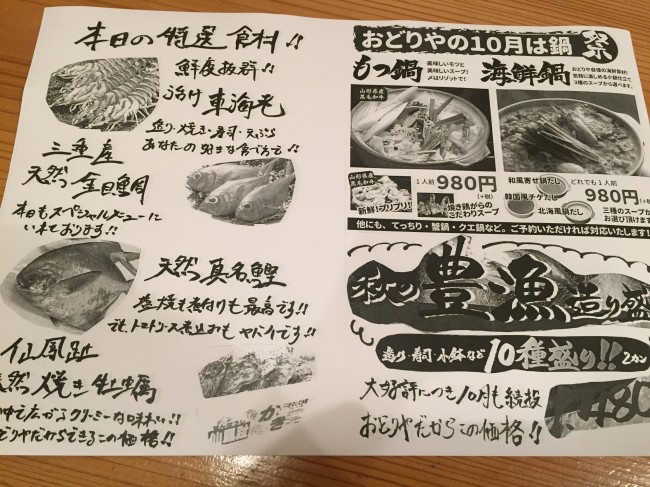 本日の特選食材!!
鮮度抜群!!
活け 車海老
造り・焼き・寿司・天ぷら
あなたの好きな食べ方で!!
三重産
天然 金目鯛
本日もスペシャルメニューに
いれております!!
天然 真名鰹
塩焼も煮付けも最高です!!
でも、トマトソース煮込みもヤバイです!!
仙鳳趾
天然 焼き牡蠣
クリーミーな味わい!!
おどりやだからできるこの価格!!
かき
おどりやの10月は鍋
もつ鍋
美味しいモツと
美味しいスープ!
〆はリゾットで!
海鮮鍋
おどりや自慢の海鮮食材!
気軽に楽しめる小鍋仕立て
3種のスープから選べます。
山形県産
黒毛和牛
山形県産
黒毛和牛
新鮮!プリプリ!
1人前 980円
(+税)
焼き鶏がらの
こだわりスープ
和風寄せ鍋だし
韓国風チゲだし
北海風鍋だし
どれでも1人前
980円
三種のスープから
お選び頂けます
他にも、てっちり・蟹鍋・クエ鍋など。ご予約いただければ対応いたします!
秋の豊漁造り盛
造り・寿司・小鉢など 10種盛り!! 2カン
大好評につき10月も続投
おどりやだからこの価格!!
480